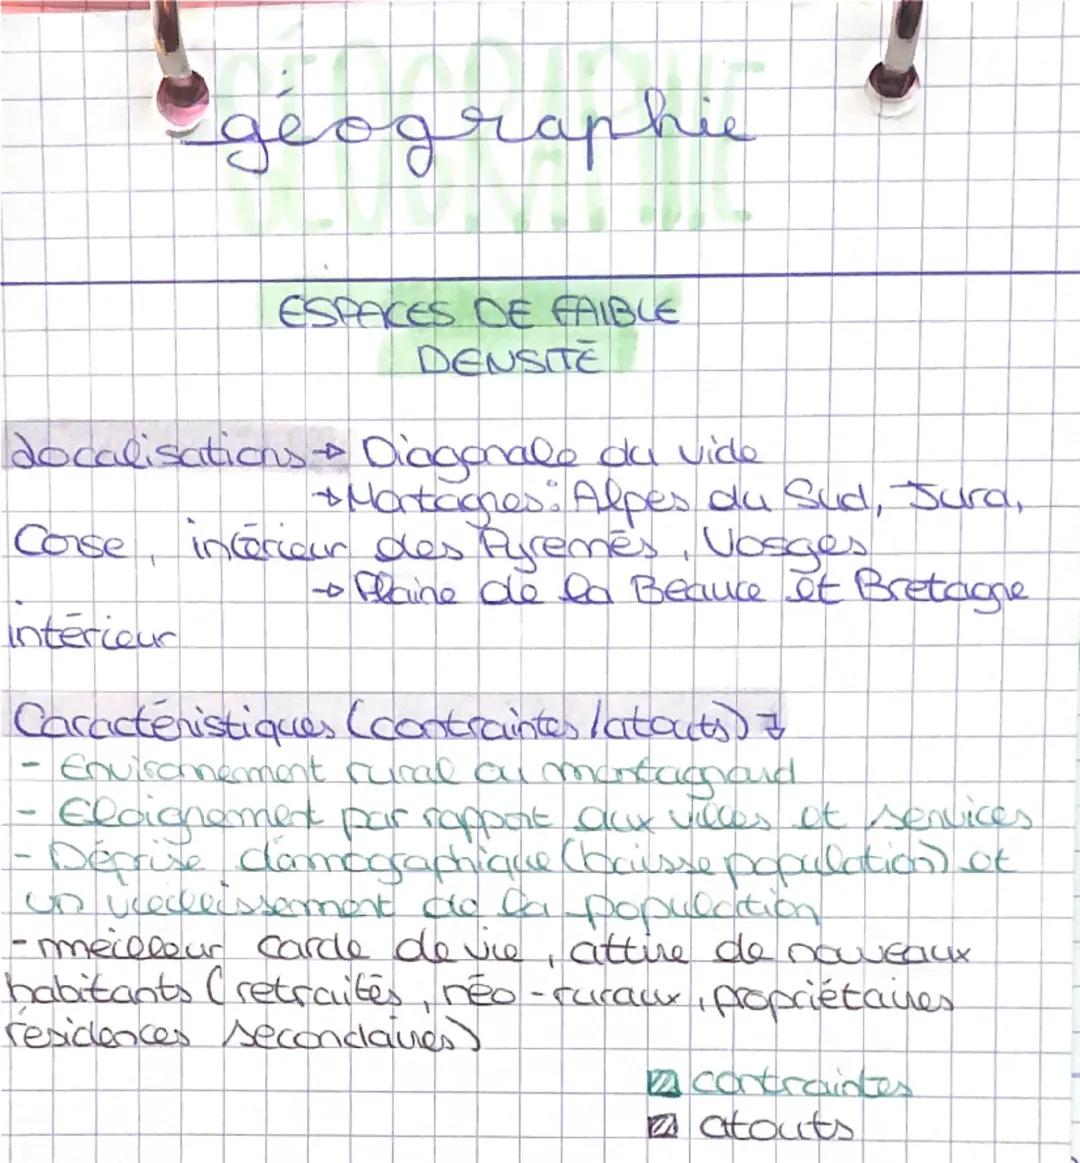 géographie
GÉOGRAPHIE
ESPACES DE FAIBLE
DENSITÉ
Localisations → Diagonale du vide
→ Montagnes : Alpes du Sud, Jura,
Corse, intérieur des Pyrenées, Vosges
→ Plaine de la Beauce et Bretagne
intérieur
Caractéristiques (contraintes/atouts) ↴
- Environnement rural ou montagnard
- Eloignement par rapport aux villes et services
- Déprise démographique (baisse population) et
un vieillissement de la population
- meilleur cadre de vie, attire de nouveaux
habitants (retraités, néo-ruraux, propriétaires
résidences secondaires)
contraintes
atouts